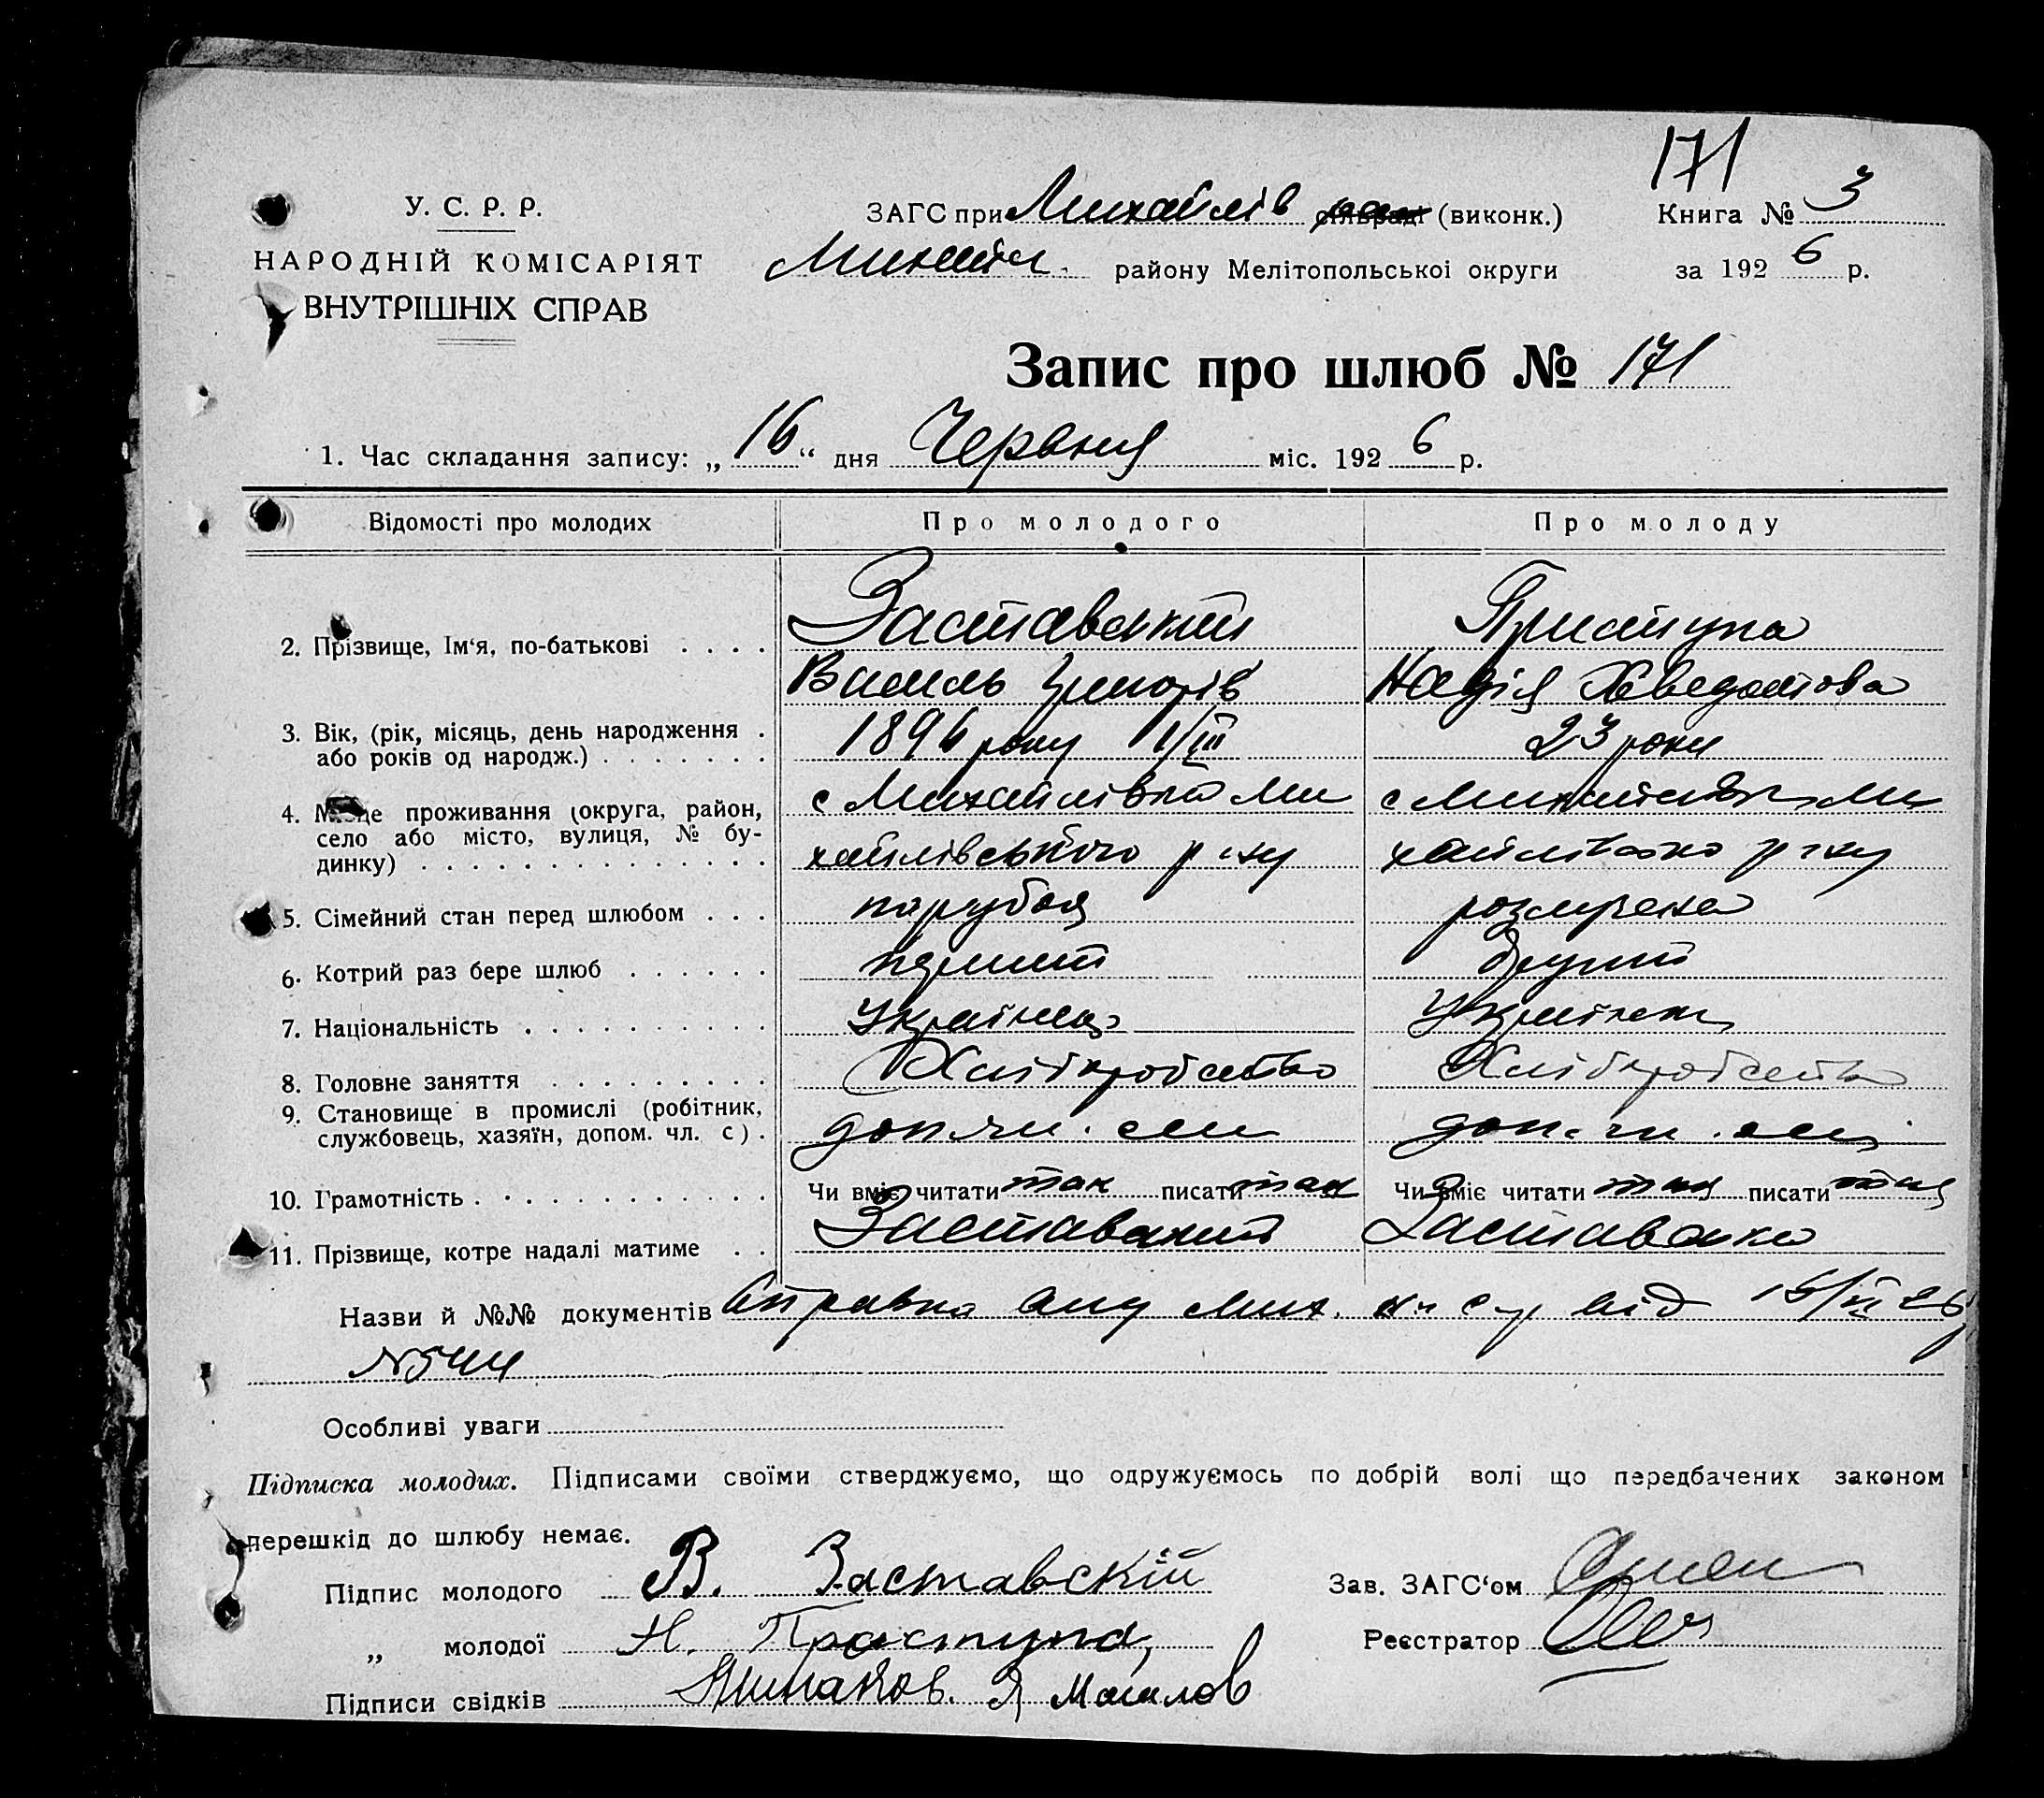 171
У. С. Р. Р.
ЗАГС при Михайлів сільраді (виконк.) Книга № 3
НАРОДНІЙ КОМІСАРІЯТ
Михайл. району Мелітопольської округи за 192 6 р.
ВНУТРІШНІХ СПРАВ
Запис про шлюб № 171
1. Час складання запису: „ 16 “ дня Червня міс. 192 6 р.
Відомості про молодих Про молодого Про молоду
2. Прізвище, Ім‘я, по-батькові . . . . Заставський Приступа
Василь Григорів Надія Хведотова
3. Вік, (рік, місяць, день народження . 1896 року 1/III 23 роки
або років од народж.) . . . . . . .
4. Місце проживання (округа, район, с Михайлівка Ми с Михайлівка Ми
село або місто, вулиця, № бу-
динку) . . . . . . . . . . . . . . хайлівського р-ну хайлівсько р-ну
5. Сімейний стан перед шлюбом . . . парубок розлучена
6. Котрий раз бере шлюб . . . . . . перший другий
7. Національність . . . . . . . . . . українець українка
8. Головне заняття . . . . . . . . . Хліборобство Хліборобство
9. Становище в промислі (робітник, доп. чл. сем доп. чл. сем
службовець, хазяїн, допом. чл. с) .
10. Грамотність . . . . . . . . . . . . Чи вміє читати так писати так Чи вміє читати так писати так
11. Прізвище, котре надалі матиме . . Заставський Заставська
Назви й №№ документів Справка Мих. від 15/VI 26
№ 544
Особливі уваги
Підписка молодих. Підписами своїми стверджуємо, що одружуємось по добрій волі що передбачених законом
перешкід до шлюбу немає.
Підпис молодого В. Заставскій Зав. ЗАГС‘ом
„ молодої Н. Приступа, Реєстратор
Підписи свідків